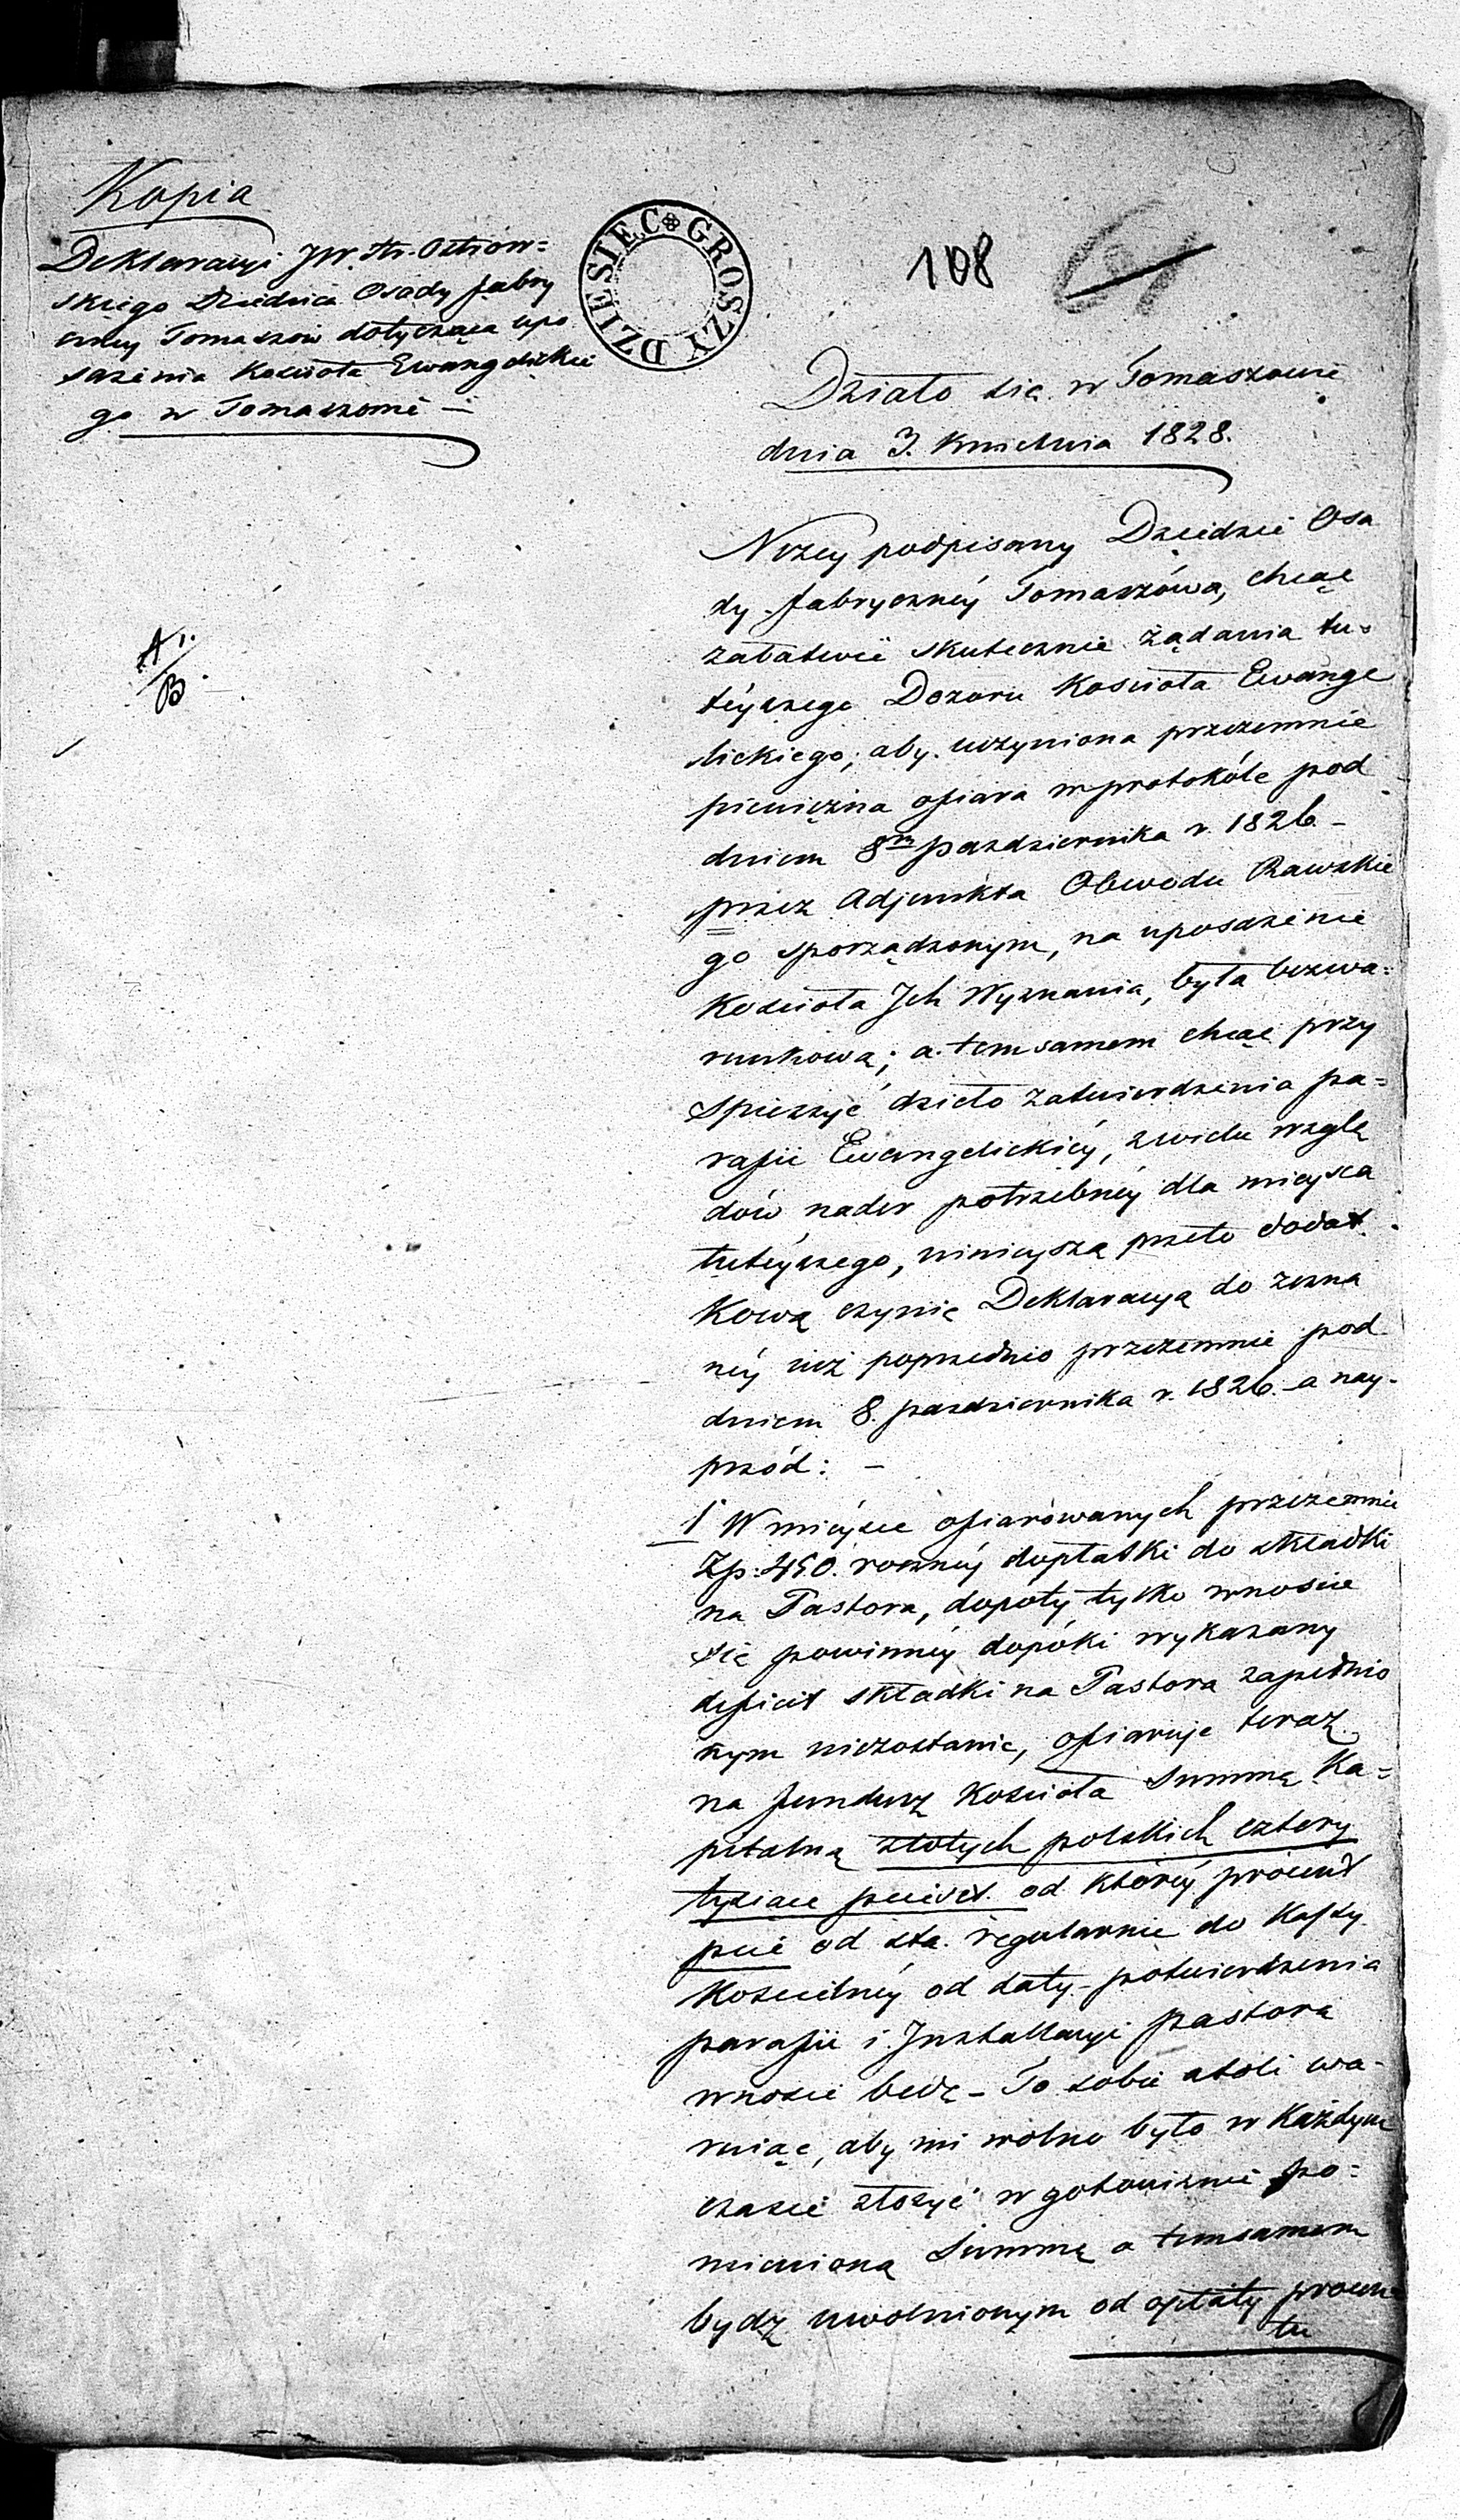 Kopia
Deklaracyi JW. Hr. Ostrow=
skiego Dziedzica Osady fabry
czney Tomaszow dotycząca upo
sażenia Kościoła Ewangelickie
go w Tomaszowie –
DZIESIĘC GROSZY
108
Działo się w Tomaszowie
dnia 3. Kwietnia 1828.
A 1.
B.
Niżey podpisany Dziedzic Osa
dy fabryczney Tomaszówa, chcąc
załatwić skutecznie żądania tu=
teyszego Dozoru Kościoła Ewange
lickiego; aby uczyniona przezemnie
pieniężna ofiara w protokóle pod
dniem 8m pazdziernika r. 1826 –
przez Adjunkta Obwodu Rawskie
go sporządzonym, na uposażenie
Kościoła Jch Wyznania, była bezwa=
runkową; a temsamem chcąc przy
spieszyć dzieło zatwierdzenia pa=
rafii Ewangelickiey, z wielu wzglę
dów nader potrzebney dla mieysca
tuteyszego, ninieyszą przeto dodat
kową czynię Deklaracyą do zezna
ney już poprzednio przezemnie pod
dniem 8. pazdziernika r. 1826. – a nay-
przód: –
1 W mieysce ofiarowanych przezemnie
Zp: 450. roczney dopłatki do składki
na Pastora, dopoty tylko wnosić
się powinney dopóki wykazany
deficit składki na Pastora zapełnio
nym niezostanie, ofiaruję teraz
na fundusz Kościoła Summę Ka=
pitalną złotych polskich cztery
tysiące pięćset. od którey procent
pięć od sta. regularnie do Kassy
Kościelney od daty potwierdzenia
parafii i Jnstallacyi pastora
wnosić będę – To sobie atoli wa-
rując, aby mi wolno było w Każdym
czasie złożyć w gotowiznie po=
mienioną Summę a temsamem
bydz uwolnionym od opłaty procen
tu